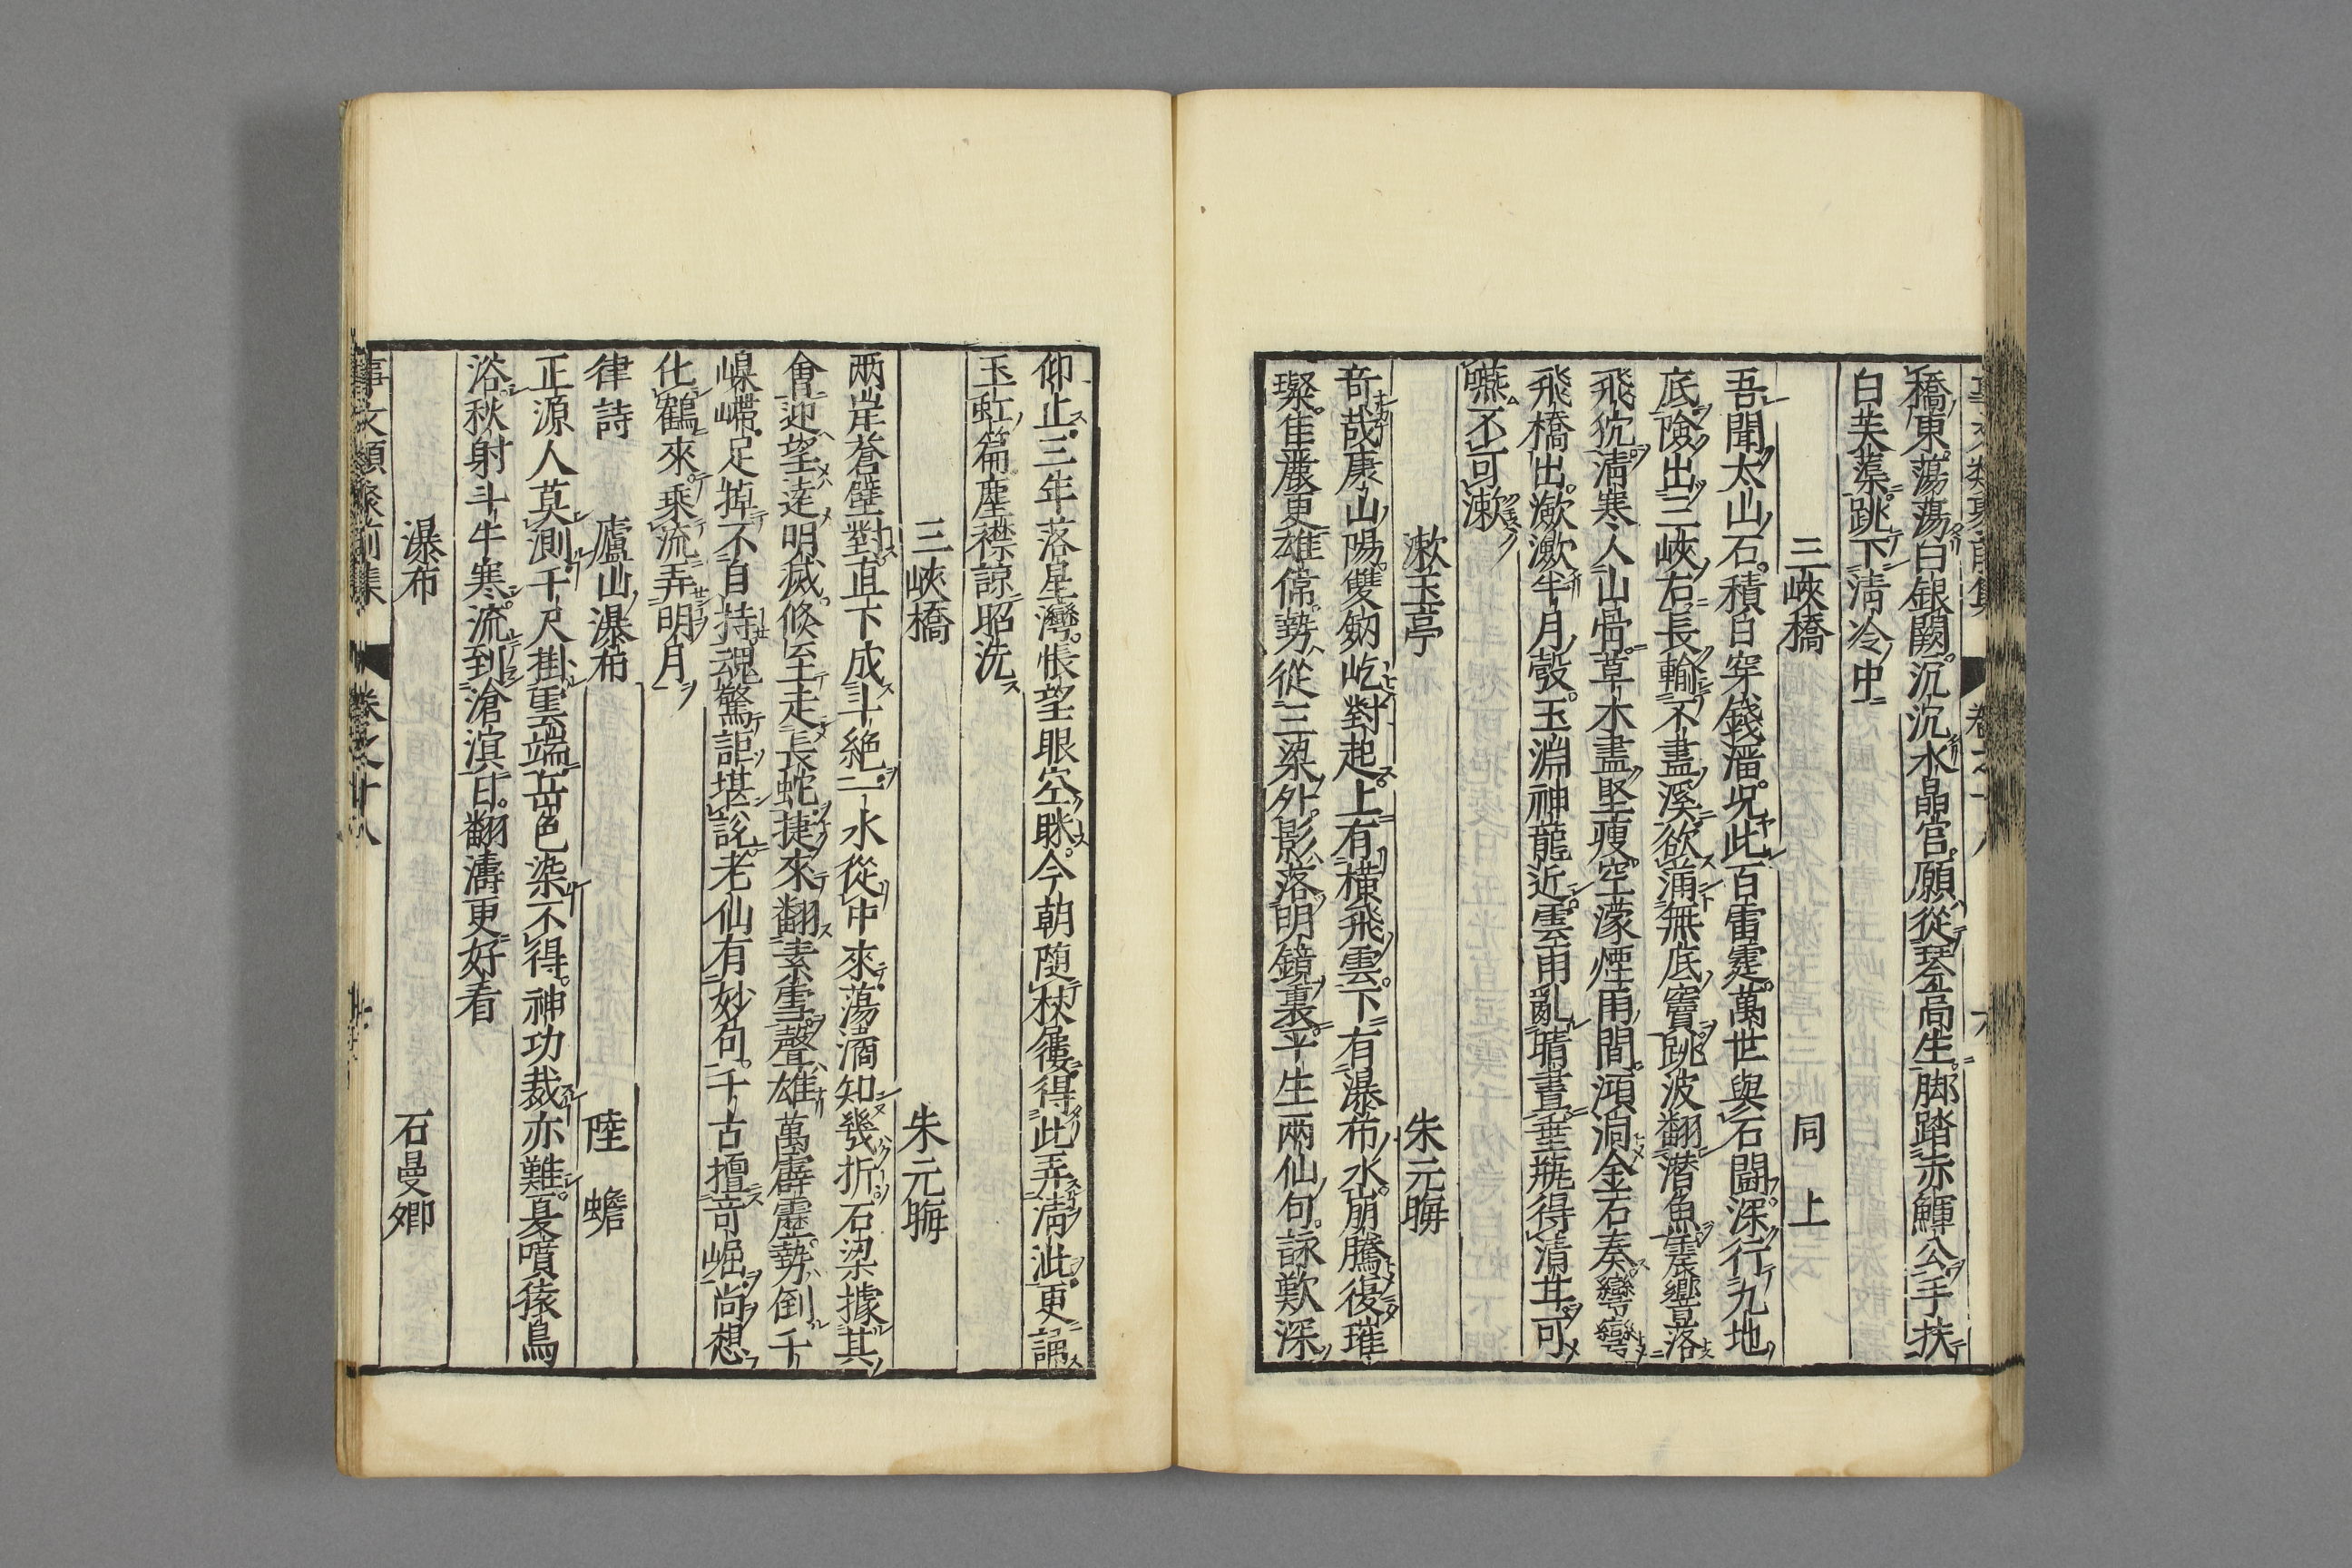 橋東蕩蕩白銀闕沉沉水晶宮願從琴高生脚踏赤鯶公手扶
白芙蕖跳下清泠中
三峽橋　同上
吾聞太山石積日穿綫溜况此百雷霆萬世與石鬪深行九地
底險出三峽右長輸不盡溪欲滿無底竇跳波翻潜魚震響落
飛狖清寒人山骨草木盡堅瘦空濛煙雨間澒洞金石奏彎彎
飛橋出瀲瀲半月彀玉淵神龍近雲雨亂晴晝垂瓶得清甘可
嚥不可漱
漱玉亭　朱元晦
竒哉康山陽雙劒屹對起上有横飛雲下有瀑布水崩騰復璀
璨佳麗更雄偉勢從三梁外影落明鏡裏平生兩仙句詠歎深
仰止三年落星灣悵望眼空眯今朝随杖屨得此弄清泚更誦
玉虹篇塵襟諒昭洗
三峽橋　朱元晦
兩岸蒼壁對直下成斗絶一水從中來蕩潏知幾折石梁據其
會迎望逺明滅倐至走長蛇捷來翻素雪聲雄萬霹靂勢倒千
嵲㠜足掉不自持魂驚詎堪説老仙有妙句千古擅竒崛尚想
化鶴來乘流弄明月
律詩　廬山瀑布　陸蟾
正源人莫測千尺掛雲端岳色染不得神功裁亦難夏噴猿鳥
浴秋射斗牛寒流到滄溟日翻濤更好看
瀑布　石曼卿
事文類聚前集　卷之十八